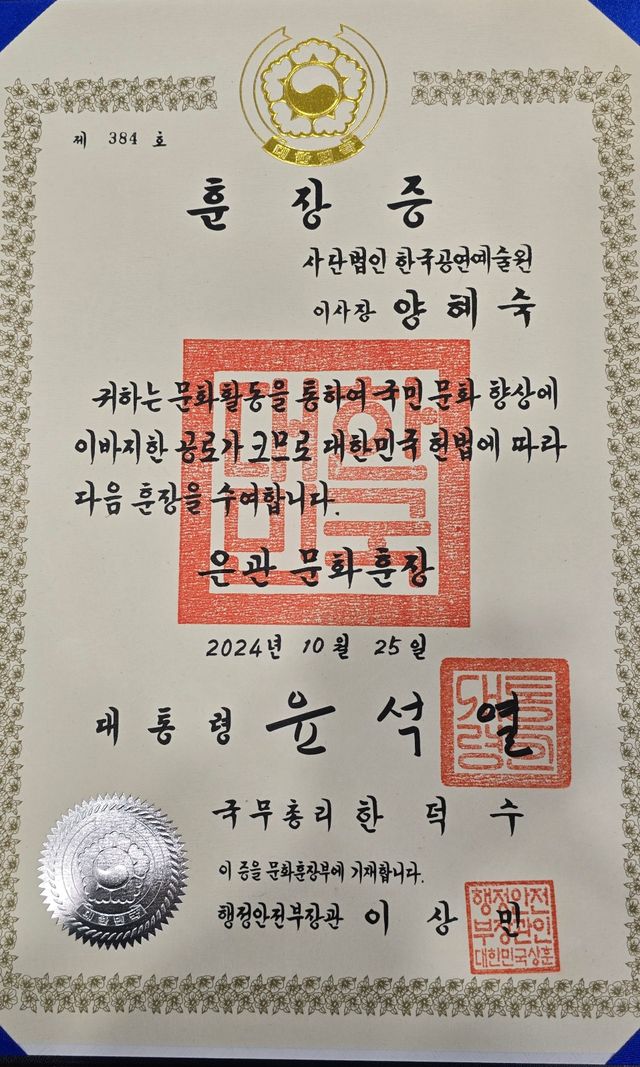 대한민국
제 384 호
훈 장 증
사단법인 한국공연예술원
이사장 양 혜 숙
귀하는 문화활동을 통하여 국민 문화 향상에
이바지한 공로가 크므로 대한민국 헌법에 따라
다음 훈장을 수여합니다.
은관 문화훈장
대한
민국
2024년 10월 25일
대 통 령 윤 석 열
대통
령의
국무총리 한 덕 수
이 증을 문화훈장부에 기재합니다.
행정안전부장관 이 상 민
행정안전
부장관인
대한민국상훈
대한민국